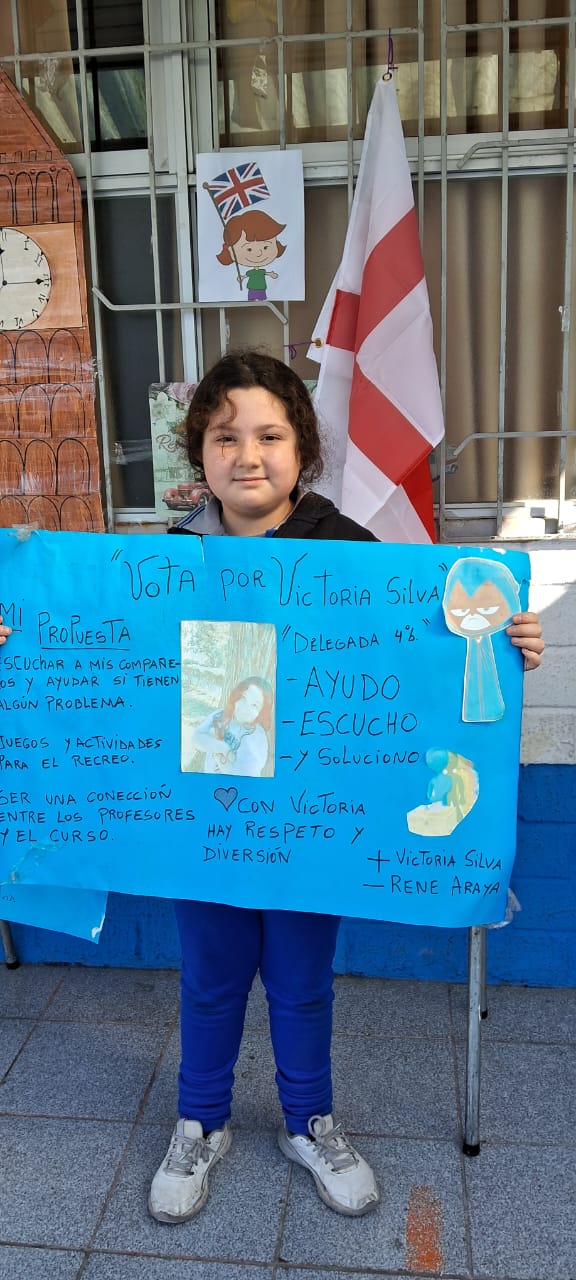 "VOTA POR VICTORIA SILVA"
MI PROPUESTA
ESCUCHAR A MIS COMPAÑE-
OS Y AYUDAR SI TIENEN
ALGÚN PROBLEMA.
JUEGOS Y ACTIVIDADES
PARA EL RECREO.
SER UNA CONECCIÓN
ENTRE LOS PROFESORES
Y EL CURSO.
"DELEGADA 4°b."
- AYUDO
- ESCUCHO
- Y SOLUCIONO
CON VICTORIA
HAY RESPETO Y
DIVERSIÓN
+ VICTORIA SILVA
- RENE ARAYA